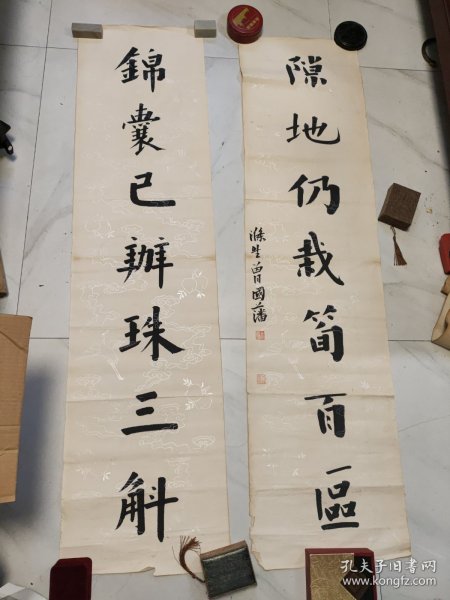 錦囊已辦珠三斛
隙地仍栽筍百區
滌生曾國藩
孔夫子旧书网
www.kongfz.com